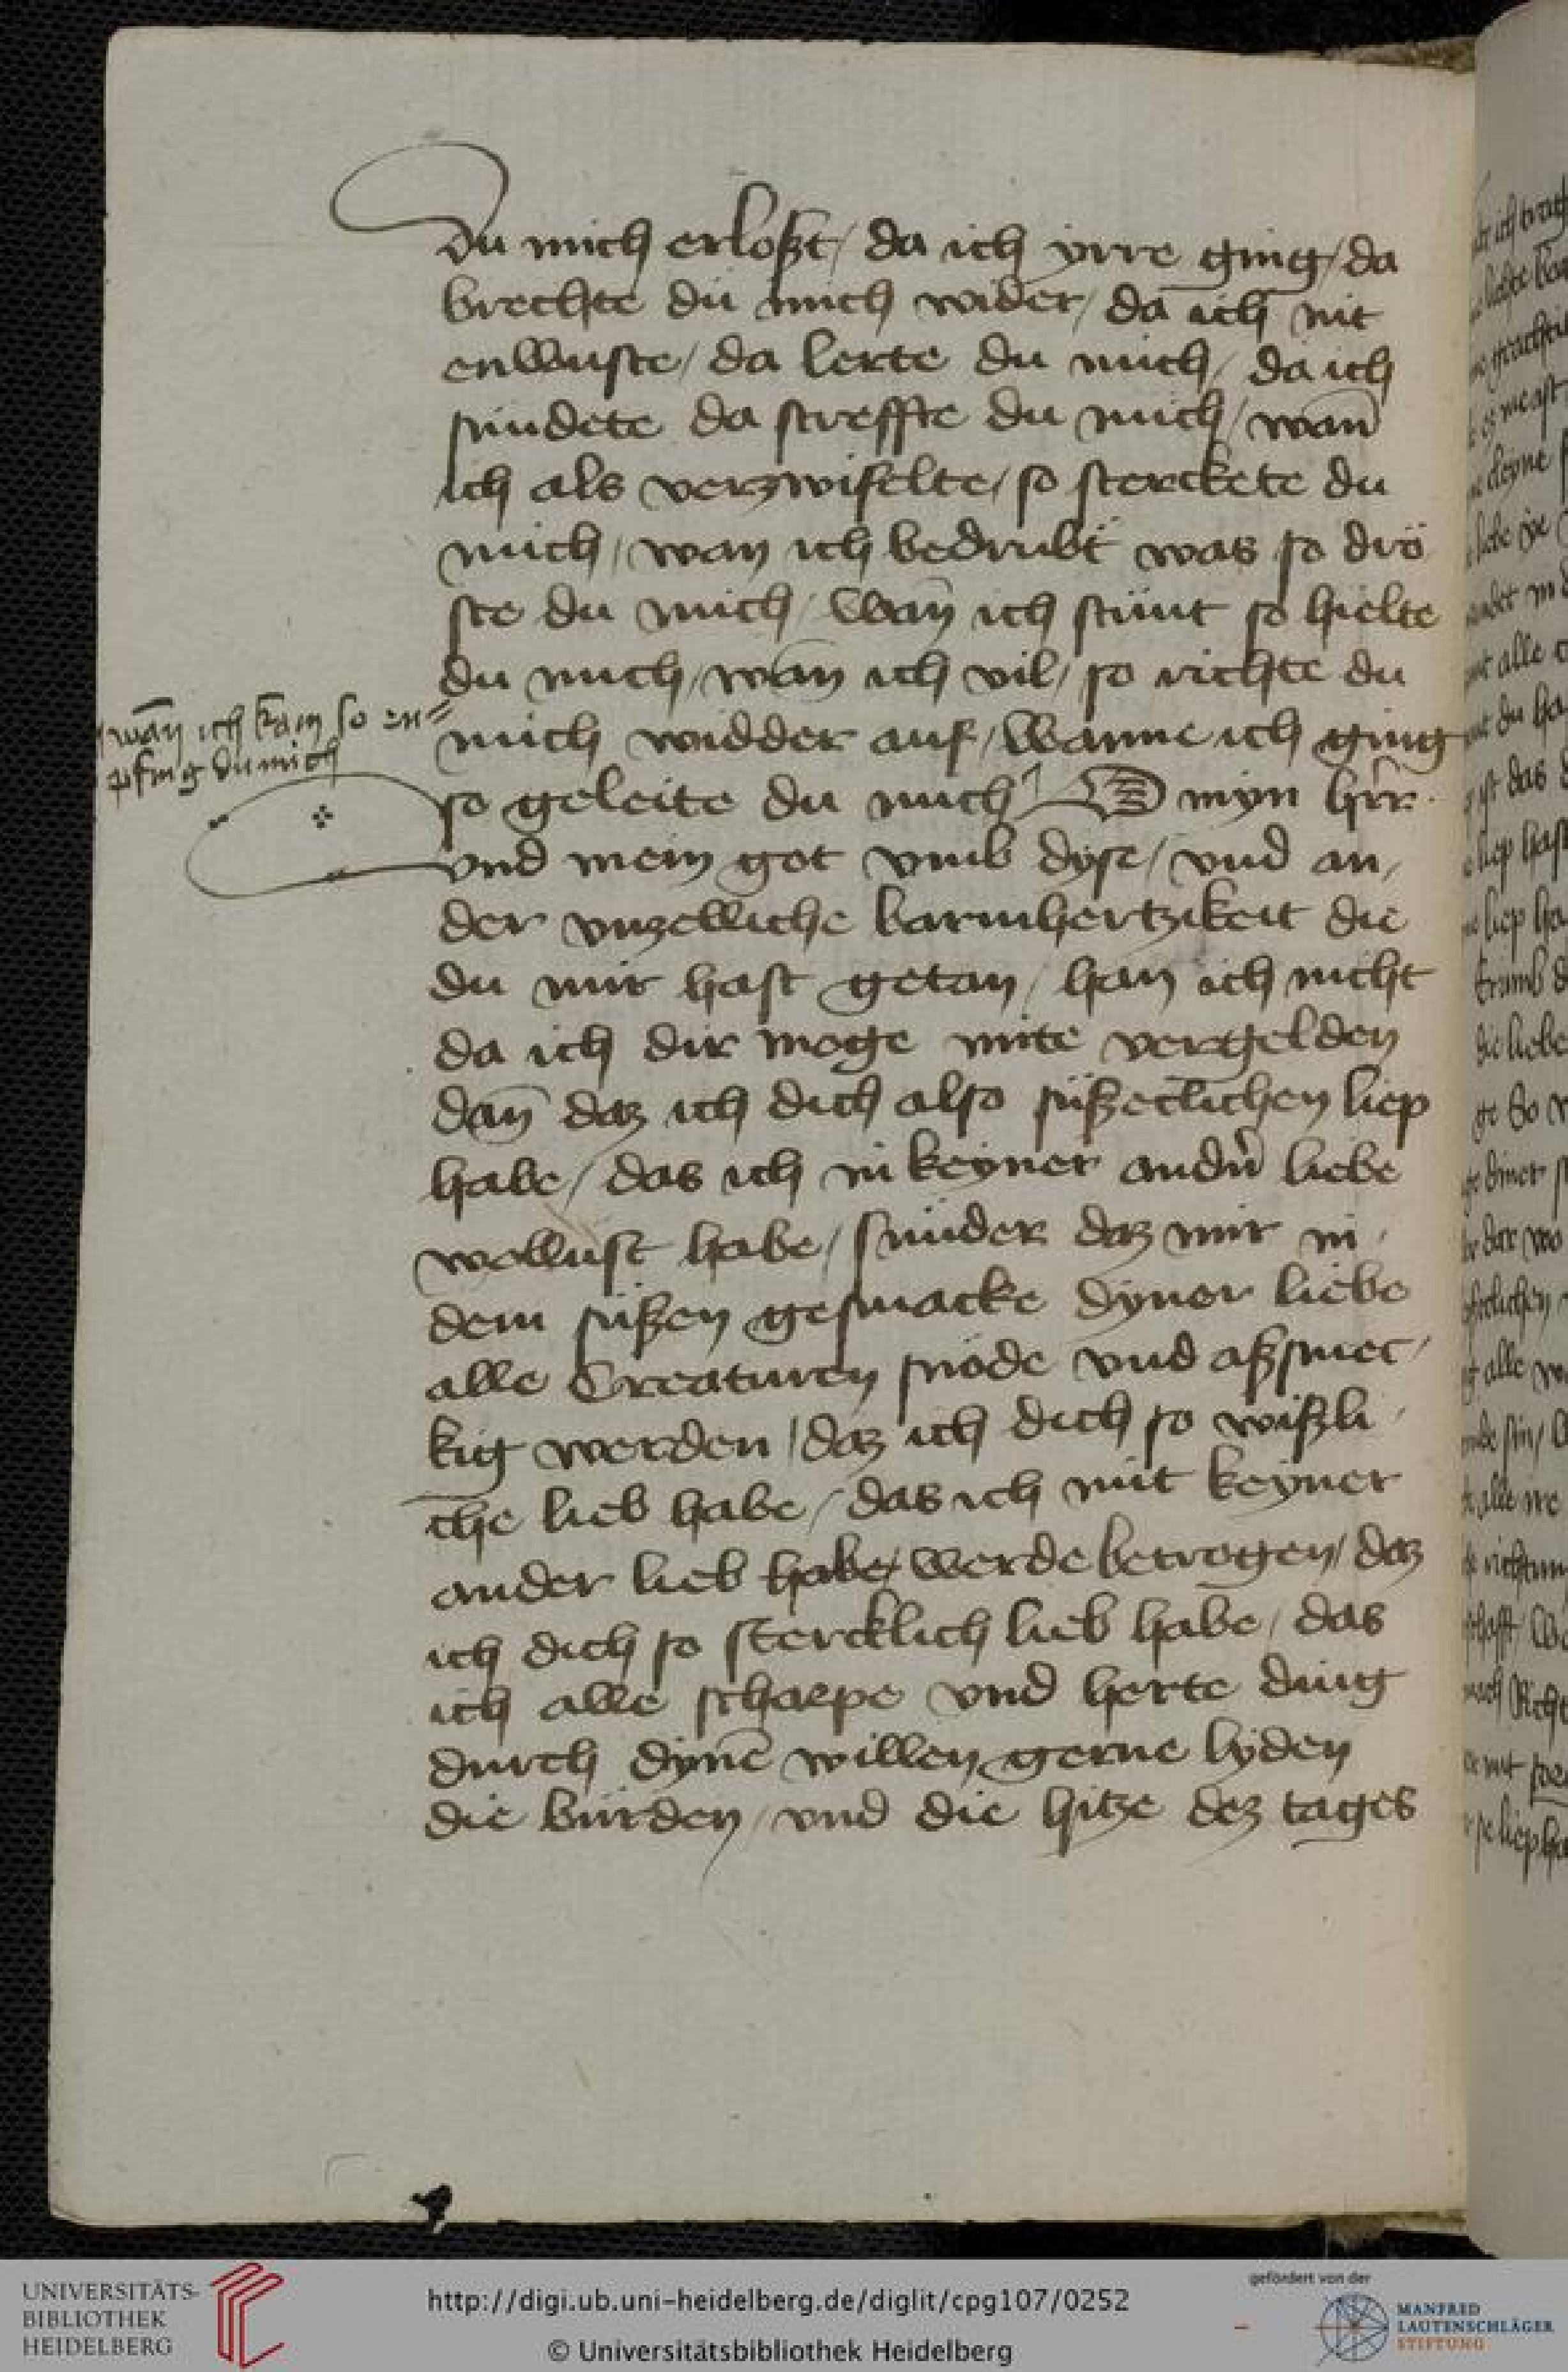 du mich erloßt / da ich yrre ging / da
brechte du mich wider / da ich nit
enwuste / da lerte du mich / da ich
sundete da streffte du mich / wan̄
ich als verzwifelte / so sterckete du
mich / wan ich bedrubt was so drö
ste du mich / Wan̄ ich stünt so hielte
du mich / wan̄ ich vil / so richte du
wan̄ ich kam so en=
pfing du mich
mich widder auf / Wanne ich ging
so geleite du mich O myn hr̄r
vnd mein got vmb dyse / vnd an
der vnzelliche barmhertzikeit die
du mir hast getan / han ich nicht
da ich dir moge mite vergelden
dan̄ daz ich dich also süßeclichen liep
habe / das ich in keyner andn̄ liebe
wollust habe / sunder daz mir in
dem süßen gesmacke dyner liebe
alle Creaturen snöde vnd aßsmec
kig werden / daz ich dich so wißli
che lieb habe / das ich mit keyner
ander lieb habe werde betrogen / daz
ich dich so stercklich lieb habe / das
ich alle scharpe vnd herte ding
durch dynē willen gerne lyden
die burden / vnd die hitze dez tages
UNIVERSITÄTS-
BIBLIOTHEK
HEIDELBERG
http://digi.ub.uni-heidelberg.de/diglit/cpg107/0252
© Universitätsbibliothek Heidelberg
gefördert von der
MANFRED
LAUTENSCHLÄGER
STIFTUNG